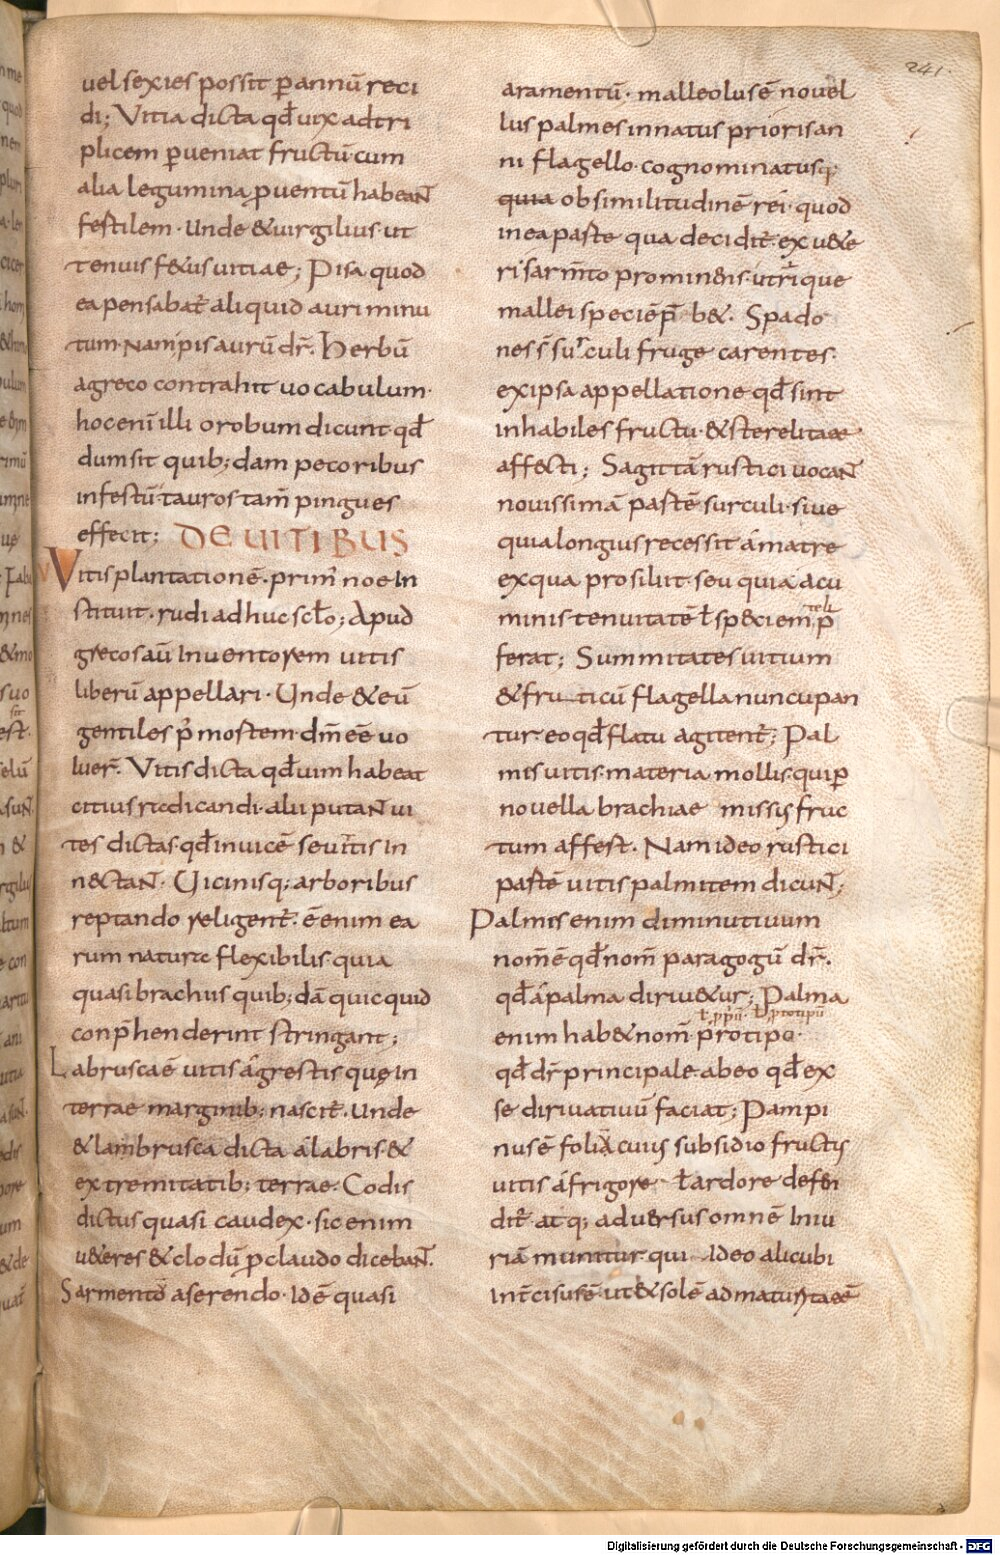 241.
uel sexies possit p̱ annū reci
di; Vitia dicta qđ uix ad tri
plicem p̱ueniat fructū cum
alia legumina ꝓuentū habeanT̄
festilem· Unde &uirgilius ut
tenuis f&us uitiae; Pisa quod
ea pensabat̄ aliquid auri minu
tum· Nam pis aurū dr̄. Herbū
a greco contrahit uocabulum·
hoc eni illi orobum dicunt qđ
dum sit quib;dam pecoribus
infestū· tauros tam̄ pingues
effecit; DE UITIBUS
Vitis plantationē· prim̄ noe In
stituit· rudi adhuc scło; Apud
grecos aū Inuentorem uitis
liberū appellari· Unde & eū
gentiles p̄ mortem· dm̄ eē uo
luer̄. Vitis dicta qđ uim habeat
citius radicandi· alii putanT̄ ui
tes dictas· qđ inuicē se uittis In
n&tanT̄· Uicinisq; arboribus
reptando religent̄. ē enim ea
rum natura flexibilis quia
quasi brachiis quib;dā quicquid
conp̄henderint stringant;
Labrusca ē uitis agrestis quę in
terrae marginib; nascit̄. Unde
& lambrusca dicta a labris &
extremitatib; terrae· Codis
dictus quasi caudex· sic enim
u&eres & clodū ꝓ claudo dicebanT̄.
Sarmentō a serendo· Idē quasi
aramentū· malleolus ē nouel
lus palmes innatus prioris an
ni flagello· cognominatusq;
quia ob similitudinē rei· quod
in ea parte qua decidit̄ ex u&e
ri sarm̄to prominens· utrique
mallei speciē p̄b&. Spado
nes s̄ surculi fruge carentes·
ex ipsa appellatione qđ sint
inhabiles fructu· & sterelitate
affecti; Sagittā rustici uocanT̄
nouissimā partē surculi· siue
quia longius recessit a matre
ex qua prosiliit· seu quia acu
minis tenuitate ł sp&ciem teli p̄
ferat; Summitates uitium
& fruticū flagella nuncupan
tur· eo qđ flatu agitent̄; Pal
mes uitis· materia mollis· qui p̱
nouella brachia emissis fruc
tum affert. Nam ideo rustici
partē uitis palmitem dicunT̄;
Palmes enim diminutiuum
nom̄ ē qđ nom̄ paragogū dr̄.
qđ a palma diriu&ur; Palma
ł ppiū. ł ꝓtotipū
enim hab& nom̄ protipo·
qđ dr̄ principale· ab eo qđ ex
se diriuatiuū faciat; Pampi
nus ē foliā cuius subsidio fructus
uitis a frigore ł ardore defen
dit̄ atq; aduersus omnē Iniu
riā munitur· qui Ideo alicubi
Int̄cisus ē ut & solē ad maturitatē
Digitalisierung gefördert durch die Deutsche Forschungsgemeinschaft - DFG